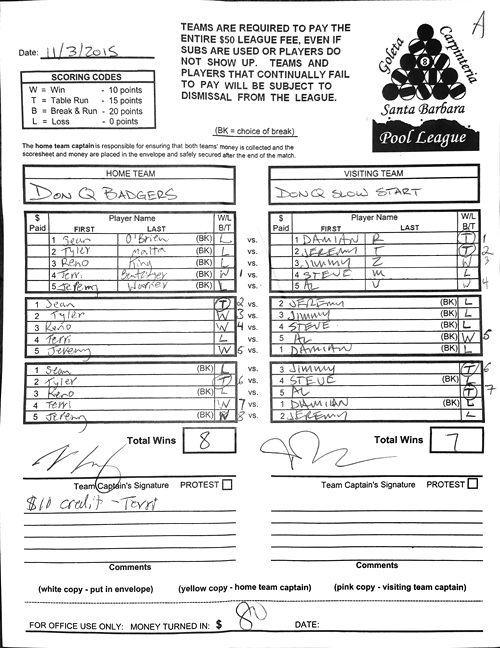 A
Date: 11/3/2015
TEAMS ARE REQUIRED TO PAY THE
ENTIRE $50 LEAGUE FEE, EVEN IF
SUBS ARE USED OR PLAYERS DO
NOT SHOW UP. TEAMS AND
PLAYERS THAT CONTINUALLY FAIL
TO PAY WILL BE SUBJECT TO
DISMISSAL FROM THE LEAGUE.
(BK = choice of break)
SCORING CODES
W = Win - 10 points
T = Table Run - 15 points
B = Break & Run - 20 points
L = Loss - 0 points
Goleta Carpinteria
8
Santa Barbara
Pool League
The home team captain is responsible for ensuring that both teams' money is collected and the
scoresheet and money are placed in the envelope and safely secured after the end of the match.
HOME TEAM VISITING TEAM
DON Q BADGERS DON Q SLOW START
$ Paid Player Name FIRST LAST W/L B/T $ Paid Player Name FIRST LAST W/L B/T
1 Sean O'Brien (BK) L vs. 1 DAMIAN R T 1
2 Tyler Malta (BK) L vs. 2 JEREMY T T 2
3 Keno King (BK) L vs. 3 JIMMY Z W 3
4 Terri (BK) W 1 vs. 4 STEVE M L
5 Jeremy (BK) L vs. 5 AL V W 4
1 Sean T 2 vs. 2 JEREMY (BK) L
2 Tyler W 3 vs. 3 JIMMY (BK) L
3 Keno W 4 vs. 4 STEVE (BK) L
4 Terri L vs. 5 AL (BK) W 5
5 Jeremy W 5 vs. 1 DAMIAN (BK) L
1 Sean (BK) L vs. 3 JIMMY T 6
2 Tyler T 6 vs. 4 STEVE (BK) L
3 Keno (BK) L vs. 5 AL T 7
4 Terri W 7 vs. 1 DAMIAN (BK) L
5 Jeremy (BK) W 8 vs. 2 JEREMY L
Total Wins 8 Total Wins 7
Team Captain's Signature PROTEST Team Captain's Signature PROTEST
$10 credit - Terri
Comments Comments
(white copy - put in envelope) (yellow copy - home team captain) (pink copy - visiting team captain)
FOR OFFICE USE ONLY: MONEY TURNED IN: $ 80 DATE: